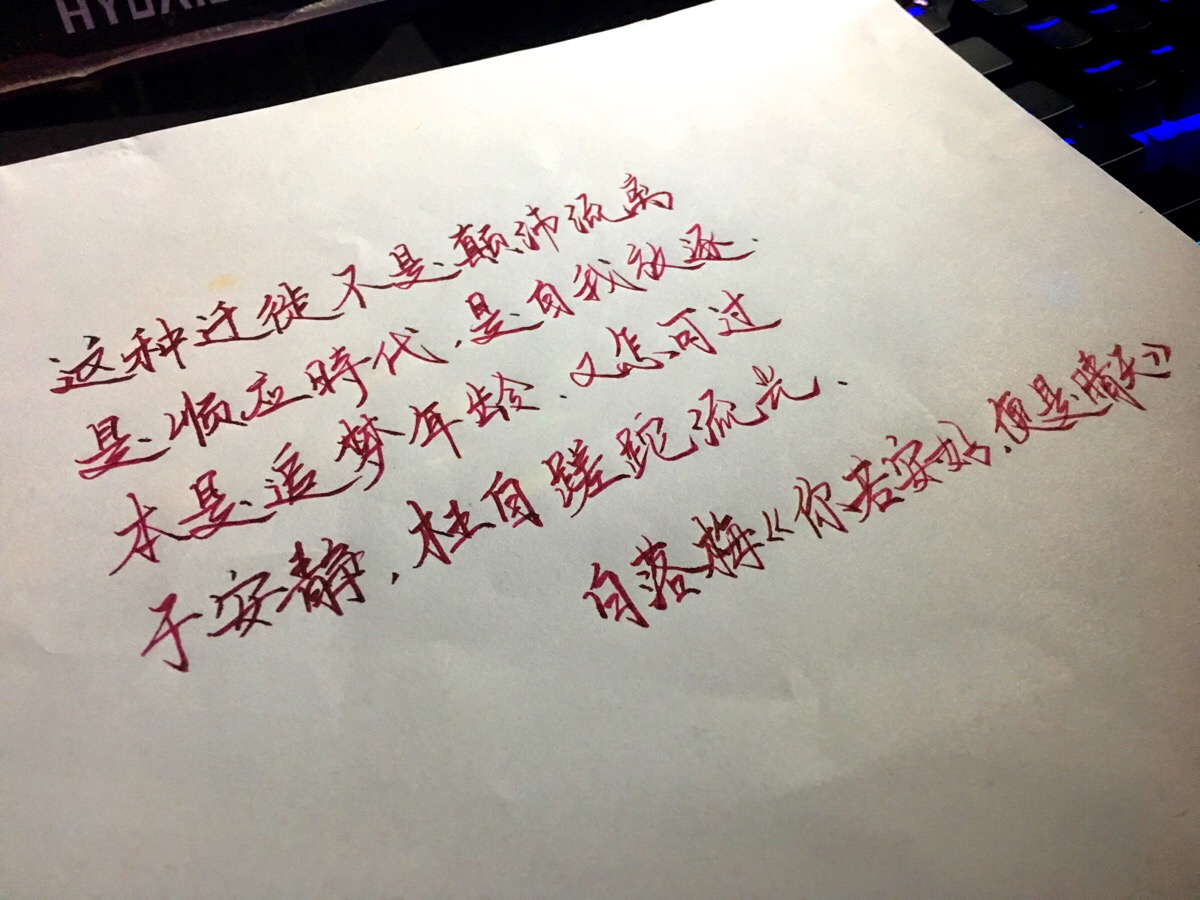 HYUXI
这种迁徙不是颠沛流离
是顺应時代,是自我放逐.
本是追梦年龄.又怎可过
于安静,枉自蹉跎流光.
白落梅《你若安好,便是晴天》